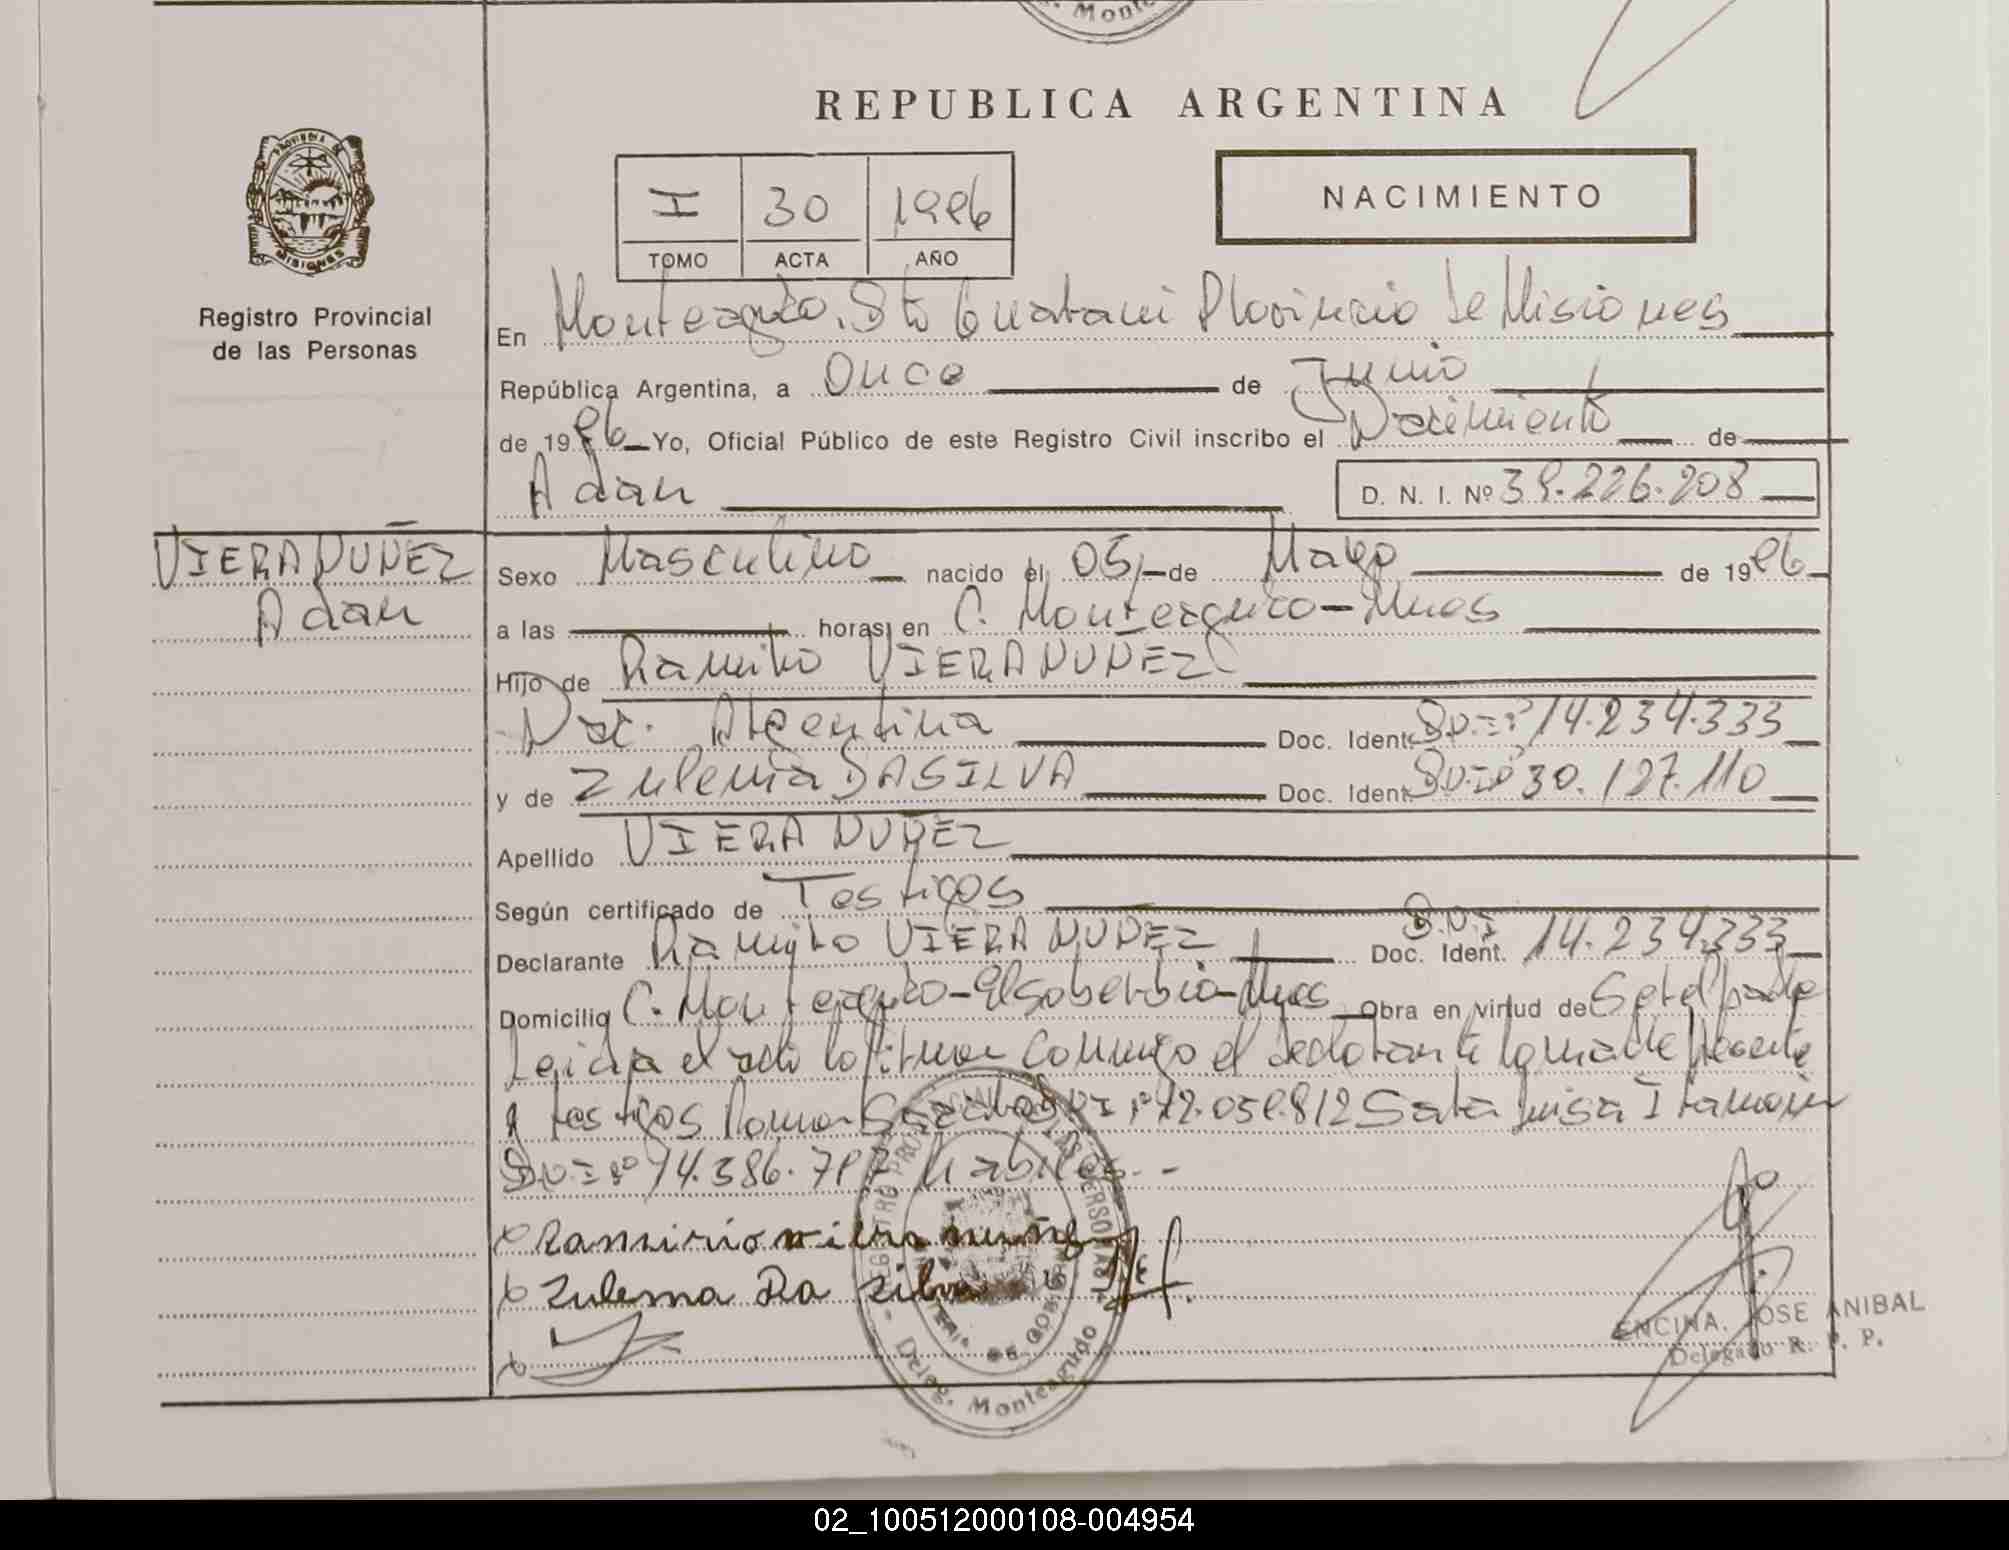 . Monte
REPUBLICA ARGENTINA
PROVINCIA DE
MISIONES
Registro Provincial
de las Personas
I 30 1986
TOMO ACTA AÑO
NACIMIENTO
En Monteagudo, Dto Guarani Provincia de Misiones
República Argentina, a Once de Junio
de 1986 Yo, Oficial Público de este Registro Civil inscribo el Nacimiento de
Adan D. N. I. Nº 39.226.208
VIERA NUÑEZ
Adan
Sexo Masculino nacido el 05 de Mayo de 1986
a las horas, en C. Monteagudo-Mnes
Hijo de Ramiro VIERA NUÑEZ
Nac. Argentina Doc. Ident. D.N.I.Nº 14.234.333
y de Zulema DA SILVA Doc. Ident. D.N.I.Nº 30.127.110
Apellido VIERA NUÑEZ
Según certificado de Testigos
Declarante Ramiro VIERA NUÑEZ Doc. Ident. D.N.I 14.234.333
Domicilio C. Monteagudo-El Soberbio-Mnes Obra en virtud de Ser el padre
Leida el acta la firman conmigo el declarante la madre presente
y testigos DNI Nº 12.058.812 Luisa
DNI Nº 14.386.797 habiles.-
x Ramirio viera nuñez
x Zulema Da silva
x
REGISTRO PROVINCIAL DE LAS PERSONAS
DE GOBIERNO
- Deleg. Monteagudo -
ENCINA, JOSE ANIBAL
Delegado R. P. P.
02_100512000108-004954